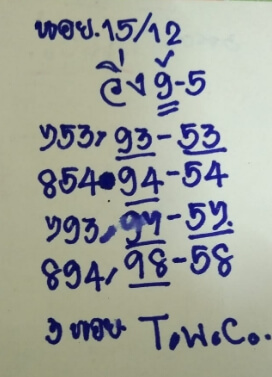 หอย.15/12
วิ่ง 9-5
753, 93-53
854 94-54
793, 97-57
894, 98-58
T.W.C.